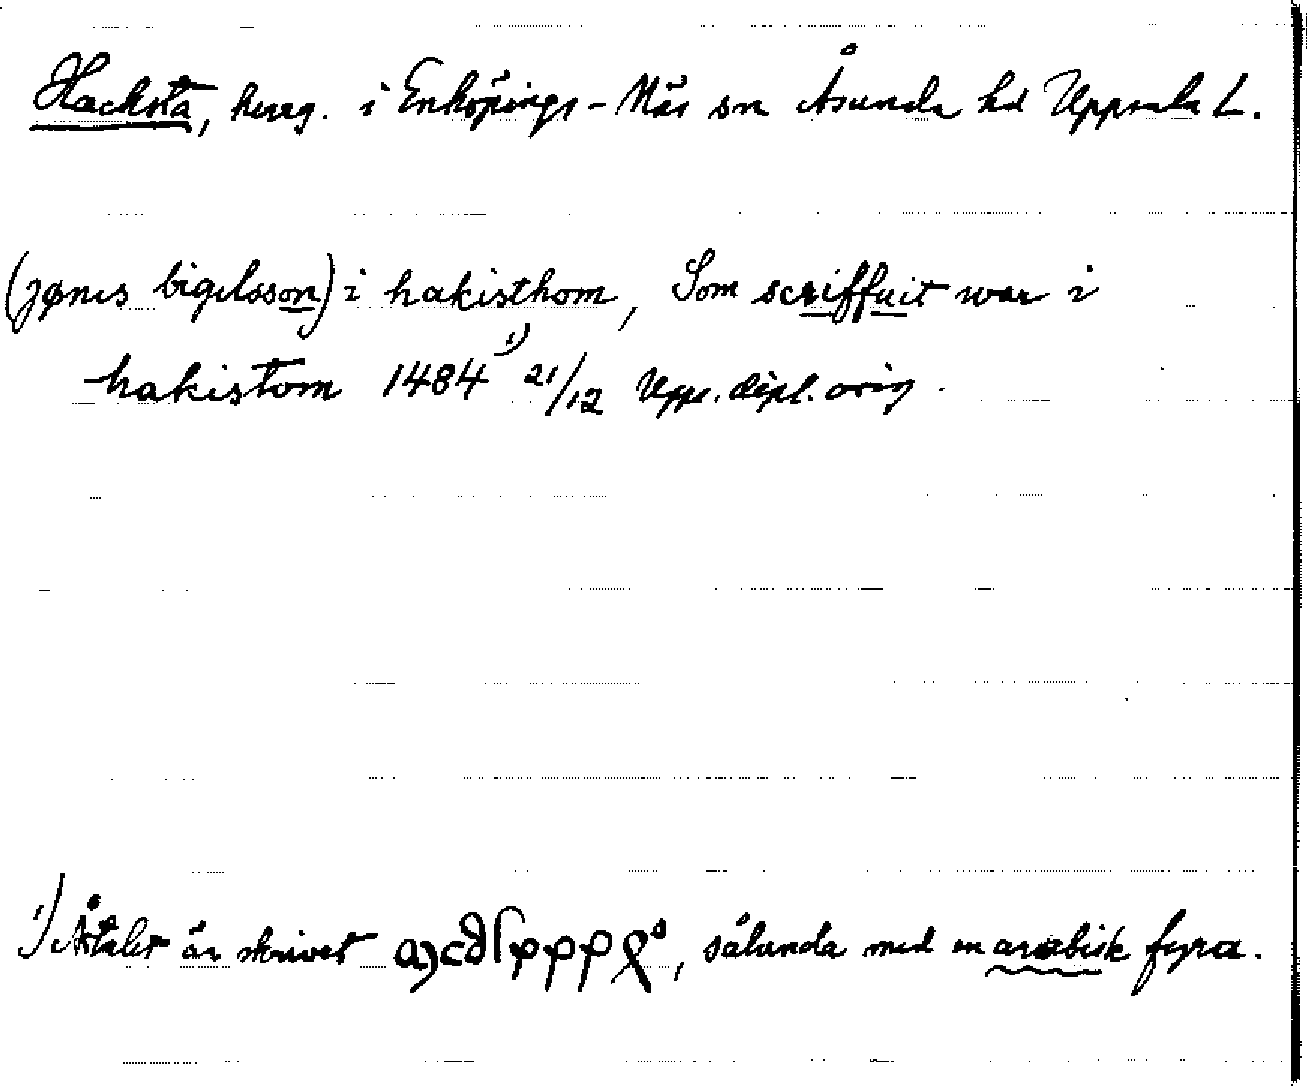 Hacksta, herrg. i Enköpings-Näs sn Åsunda hd Uppsala L.
(jønis bigelsson) i hakisthom, Som scriffuit war i
hakistom 1484 ¹⁾ 21/12 Upps. dipl. orig.
¹⁾ Årtalet är skrivet, sålunda med en arabisk fyra.